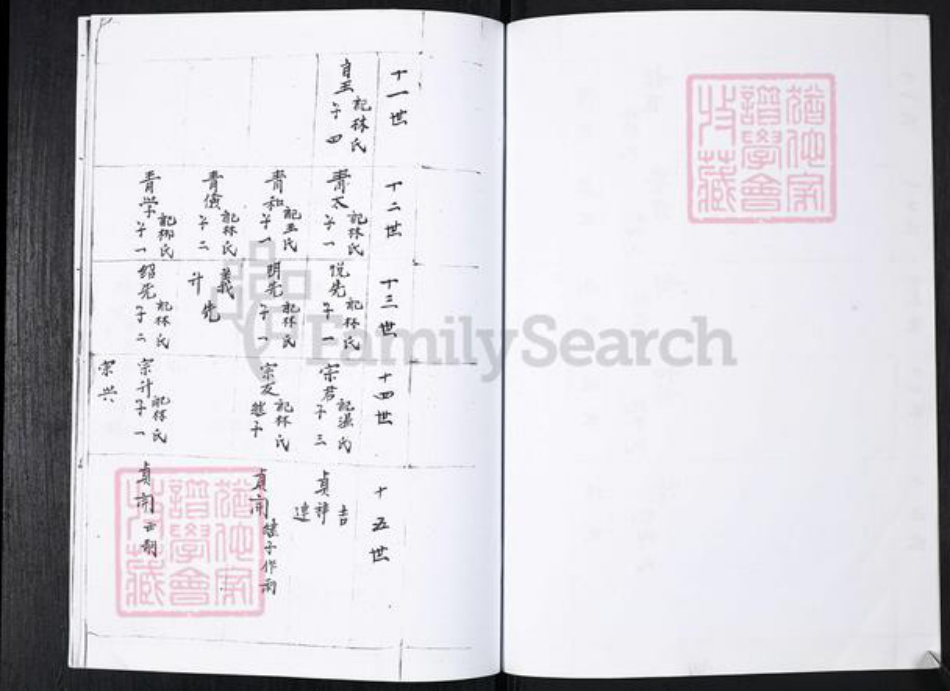 十一世
肯玉 配林氏
子四
十二世
青太 配林氏
子一
青和 配王氏
子一
青俊 配林氏
子二
青学 配柳氏
子一
十三世
悦先 配林氏
子一
明先 配林氏
子一
義先
升
绍先 配林氏
子二
十四世
宗君 配温氏
子三
宗友 配林氏
继子
宗升 配林氏
子一
宗兴
十五世
吉
貞祥
連
貞開
继子作
貞開
FamilySearch
譜學會
收藏
譜學會
收藏